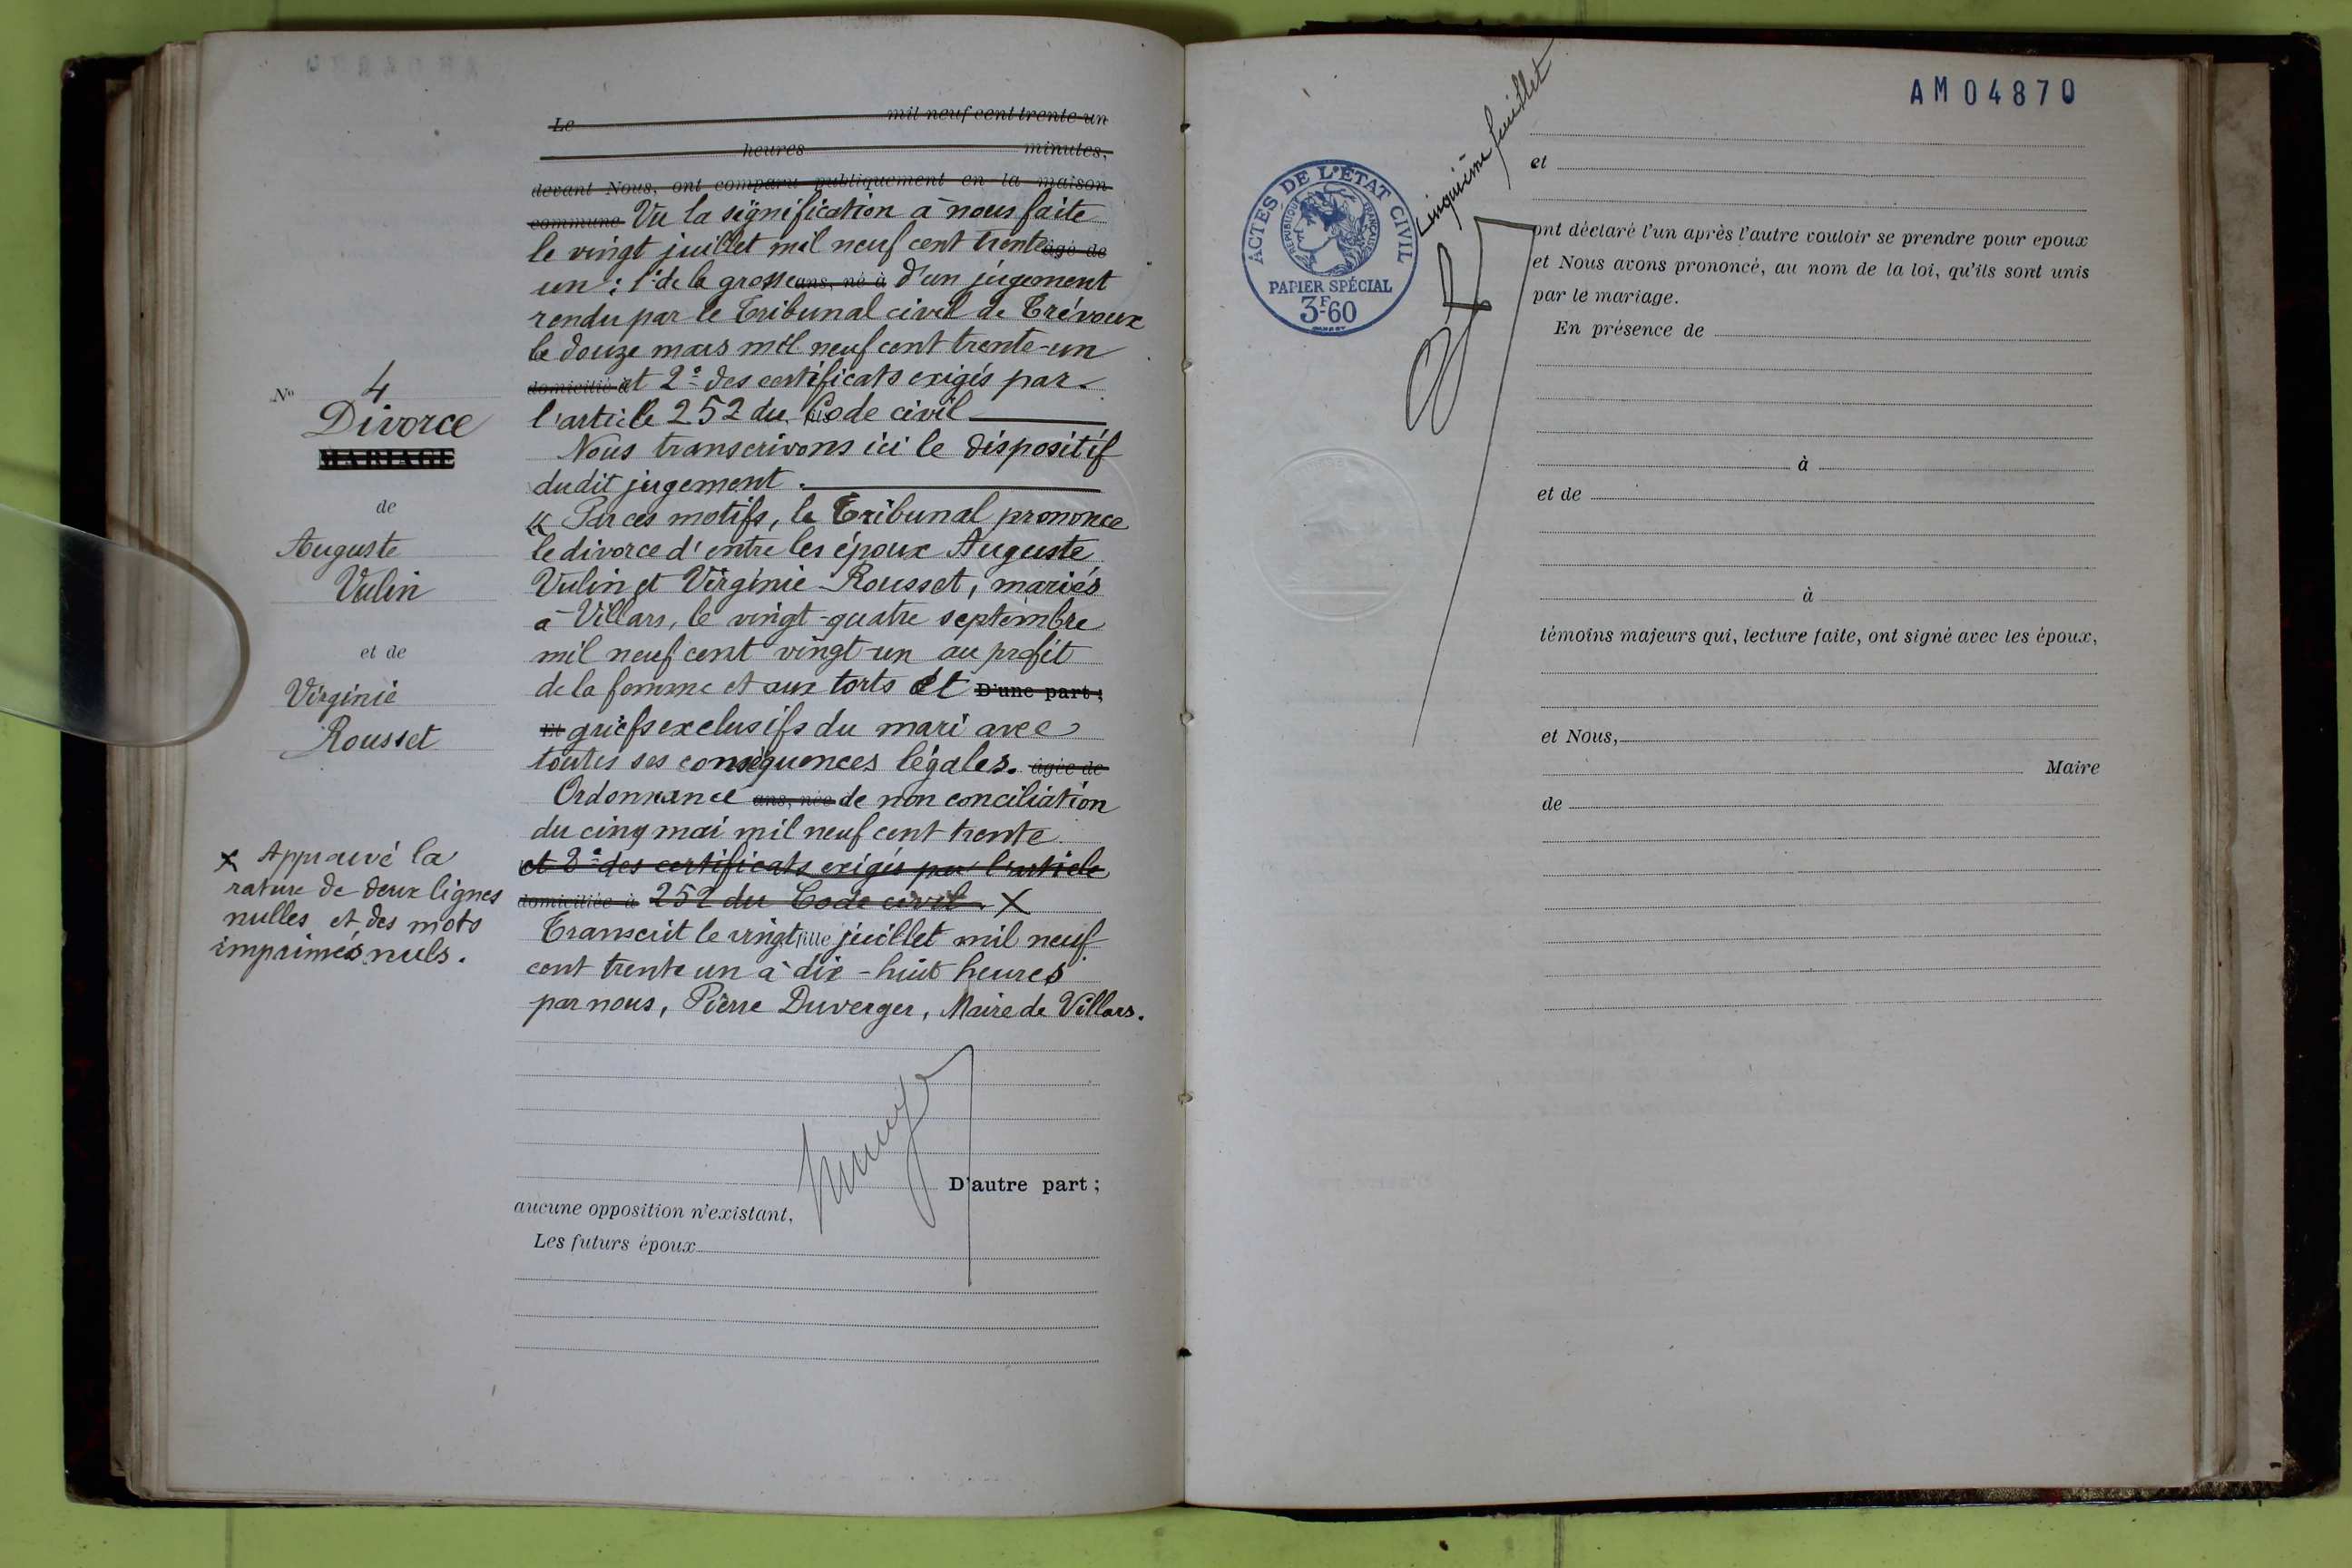 Le mil neuf cent trente un
heures minutes,
devant Nous, ont comparu publiquement en la maison
commune Vu la signification à nous faite
le vingt juillet mil neuf cent trente âgé de
un : 1º de la grosse ans, né à d'un jugement
rendu par le Tribunal civil de Trévoux
le douze mars mil neuf cent trente-un
domicilié à et 2º des certificats exigés par
l'article 252 du fils Code civil
Nous transcrivons ici le dispositif
dudit jugement.
« Par ces motifs, le Tribunal prononce
le divorce d'entre les époux Auguste
Vulin et Virginie Rousset, mariés
à Villars, le vingt-quatre septembre
mil neuf cent vingt-un au profit
de la femme et aux torts et D'une part ;
Et griefs exclusifs du mari avec
toutes ses conséquences légales. âgée de
Ordonnance ans, née de non conciliation
du cinq mai mil neuf cent trente
et 2º des certificats exigés par l'article
domiciliée à 252 du Code civil. X
Transcrit le vingt fille juillet mil neuf
cent trente un à dix-huit heures
par nous, Pierre Duverger, Maire de Villars.
D'autre part ;
aucune opposition n'existant,
Les futurs époux
Nº 4
Divorce
MARIAGE
de
Auguste
Vulin
et de
Virginie
Rousset
X Approuvé la
rature de deux lignes
nulles et des mots
imprimés nuls.
AM04870
Cinquième feuillet
ACTES DE L'ÉTAT CIVIL
RÉPUBLIQUE FRANÇAISE
PAPIER SPÉCIAL
3F60
et
ont déclaré l'un après l'autre vouloir se prendre pour epoux
et Nous avons prononcé, au nom de la loi, qu'ils sont unis
par le mariage.
En présence de
à
et de
à
témoins majeurs qui, lecture faite, ont signé avec les époux,
et Nous,
Maire
de